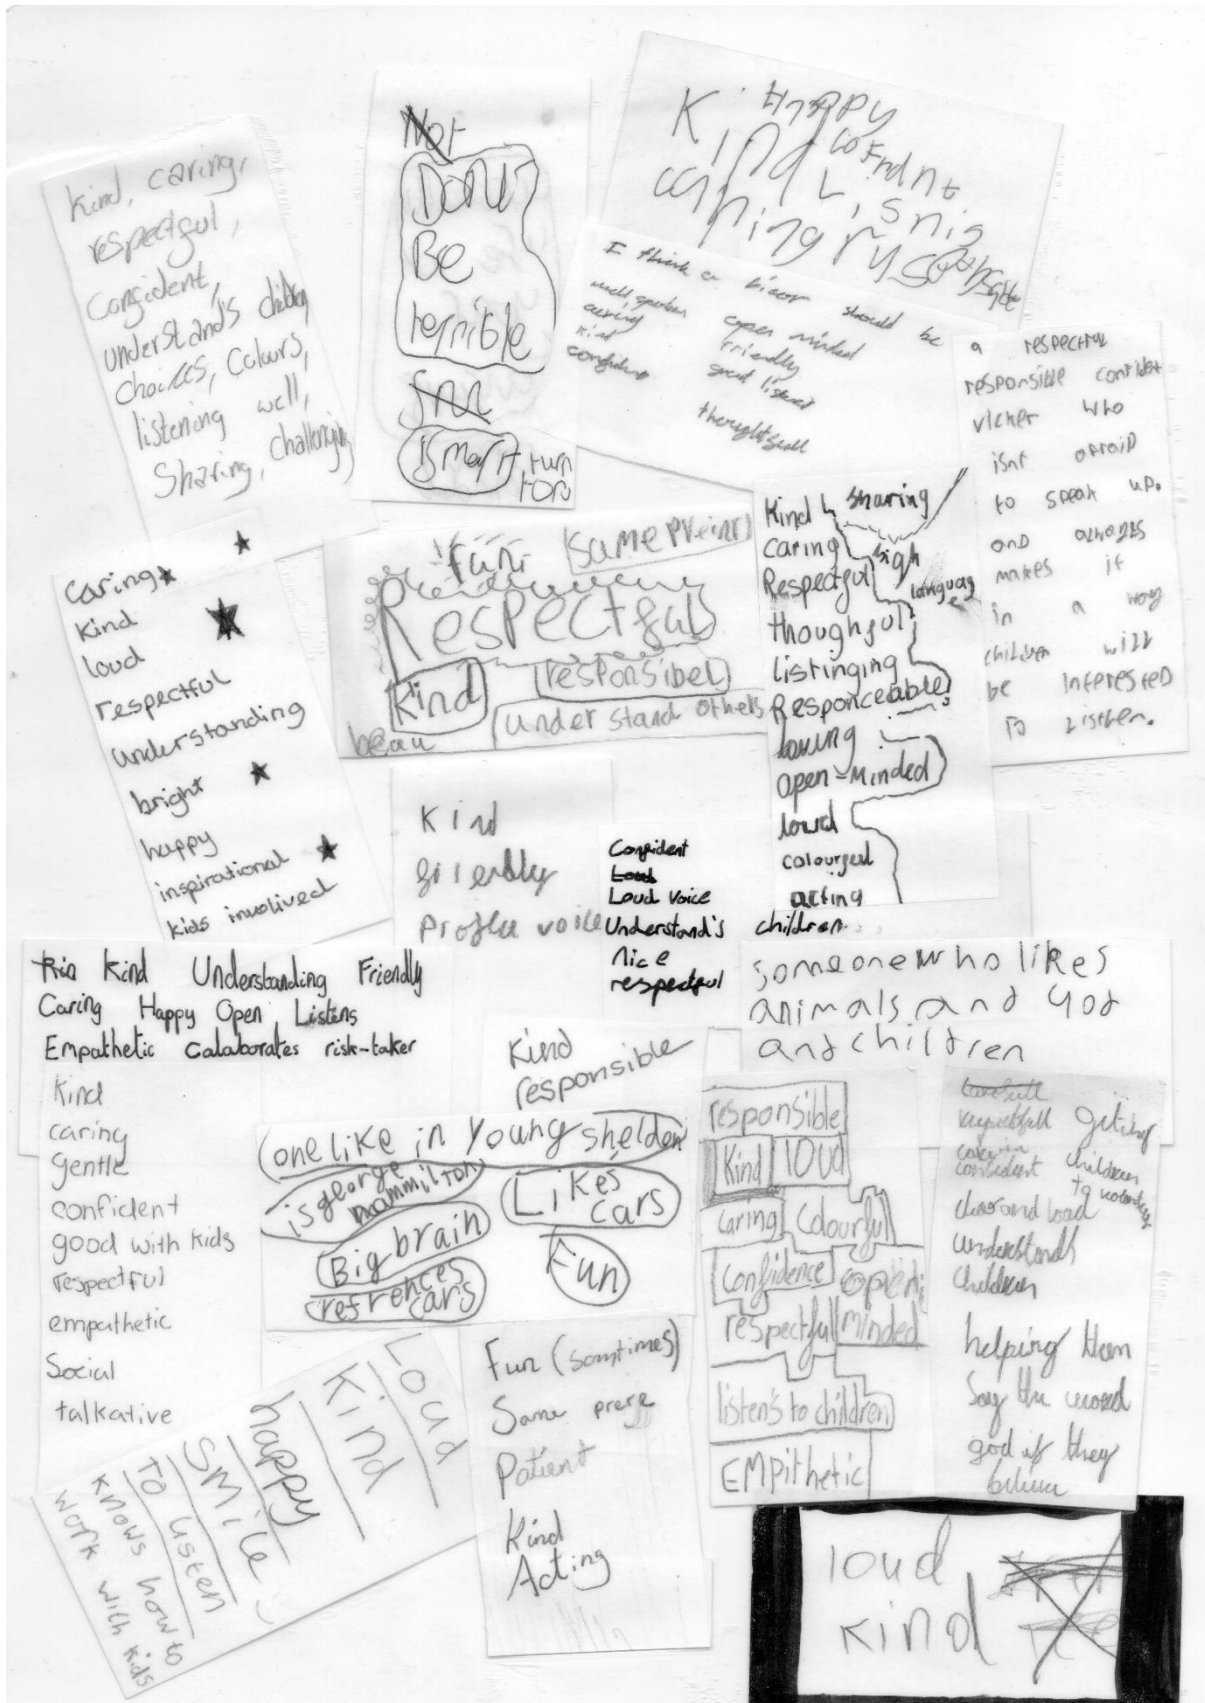 kind, caring,
respectful,
Confident,
understand's children
choices, Colours,
listening well,
Sharing, challenging
Not
Dont
Be
terrible
fun
smart
turn
Happy
Kind
cofndnt
Lisnig
caring
I think a vicor should be
well spoken
caring
kind
confident
open minded
friendly
great listener
thoughtfull
a respectful
responsible confident
vicker who
isnt afraid
to speak up.
and always
makes it
in a way
children will
be interested
to listhen.
caring
kind
loud
respectful
understanding
bright
happy
inspirational
kids involived
fun
Same
Respectful
kind
responsibel
under stand others
beau
Kind
sharing
caring
high
language
Respectful
thoughful
listringing
Responceable
loving
open-minded
loud
colourful
acting
Kind
friendly
voice
Confident
Loud
Loud voice
Understand's children
nice
respectful
Kind Understanding Friendly
Caring Happy Open Listens
Empathetic Calaborates risk-taker
someone who likes
animals and god
and children
kind
caring
gentle
confident
good with kids
respectful
empathetic
Social
talkative
Kind
responsible
one like in young shelden
is george
Likes
cars
Big brain
refrences
cars
Fun
responsible
Kind
loud
caring
colourful
confidence
open
minded
respectfull
listen's to children
EMPithetic
children
clear and loud
understands
children
helping them
Say the word
god if they
Loud
Kind
happy
smile
to listen
knows how to
work with kids
Fun (somtimes)
Same
Patient
Kind
Acting
loud
kind